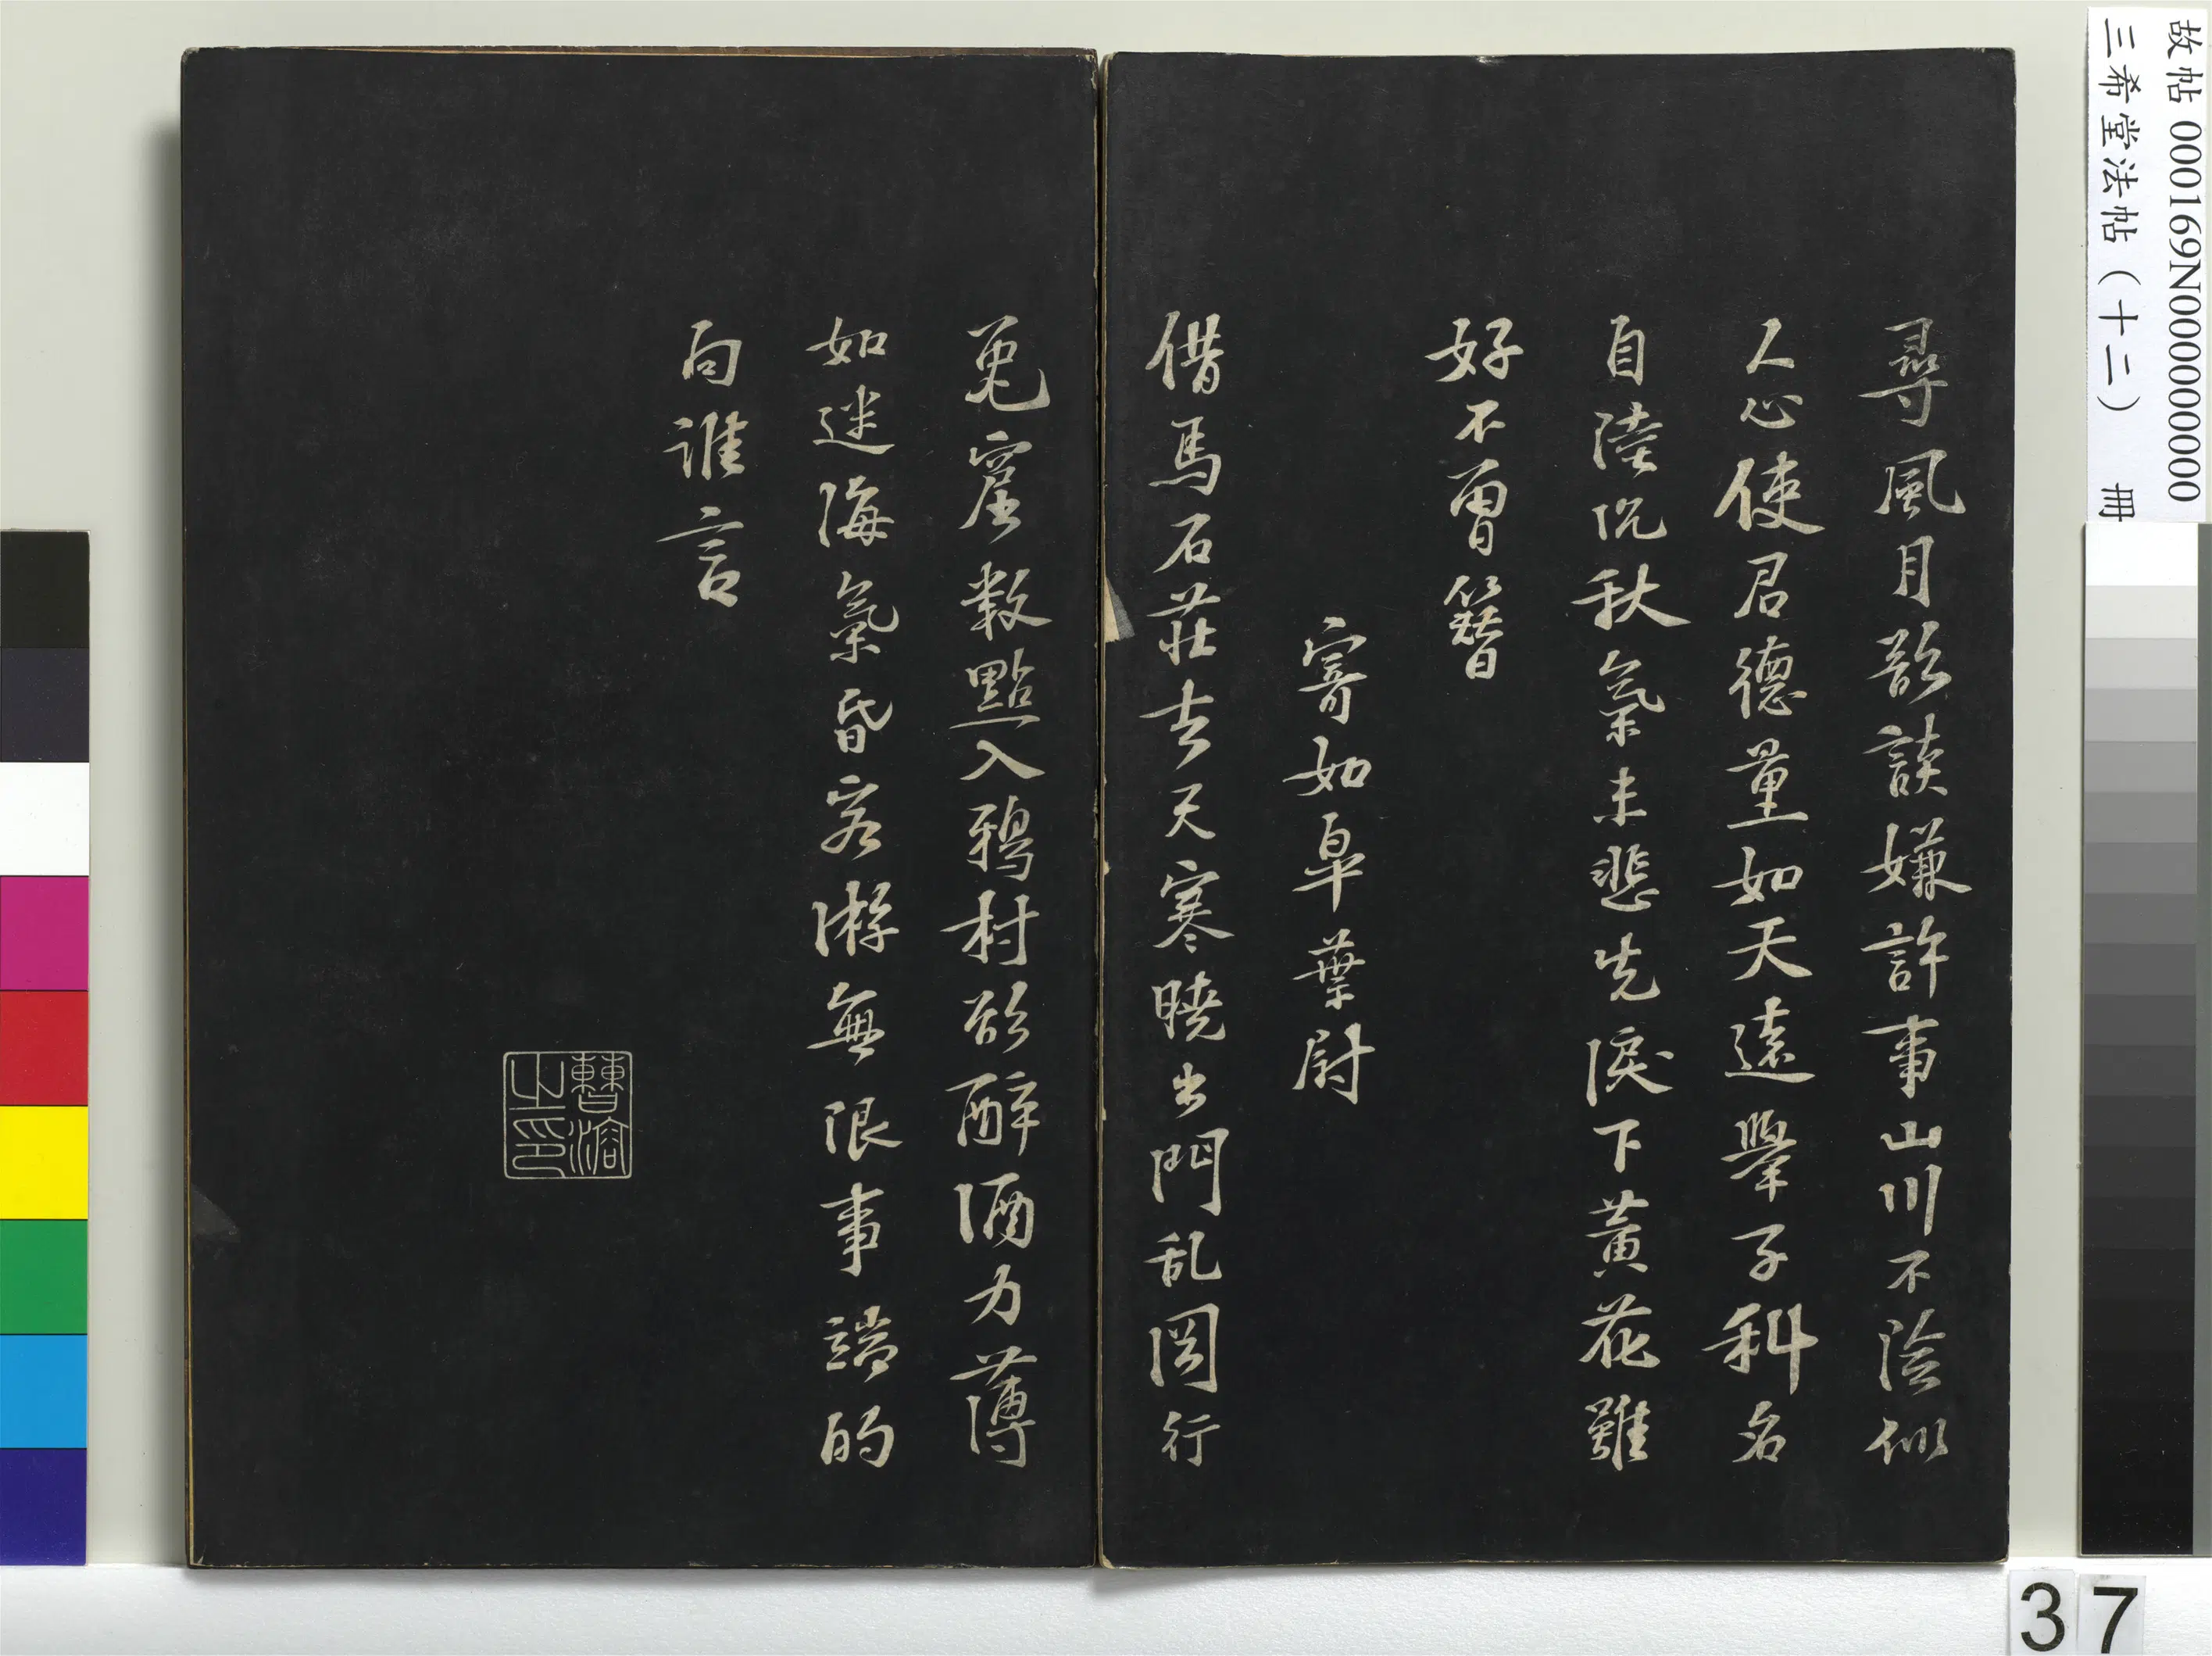 故帖 000169N000000000
三希堂法帖（十二） 冊
尋風月欲談嫌許事山川不險似
人心使君德量如天遠舉子科名
自陸沉秋氣未悲先淚下黃花雖
好不曾簪
寄如皐葉尉
借馬石莊去天寒曉出門乱岡行
兎窟數點入鴉村欲醉酒力薄
如迷海氣昏客游無限事端的
向誰言
曹溶之印
37